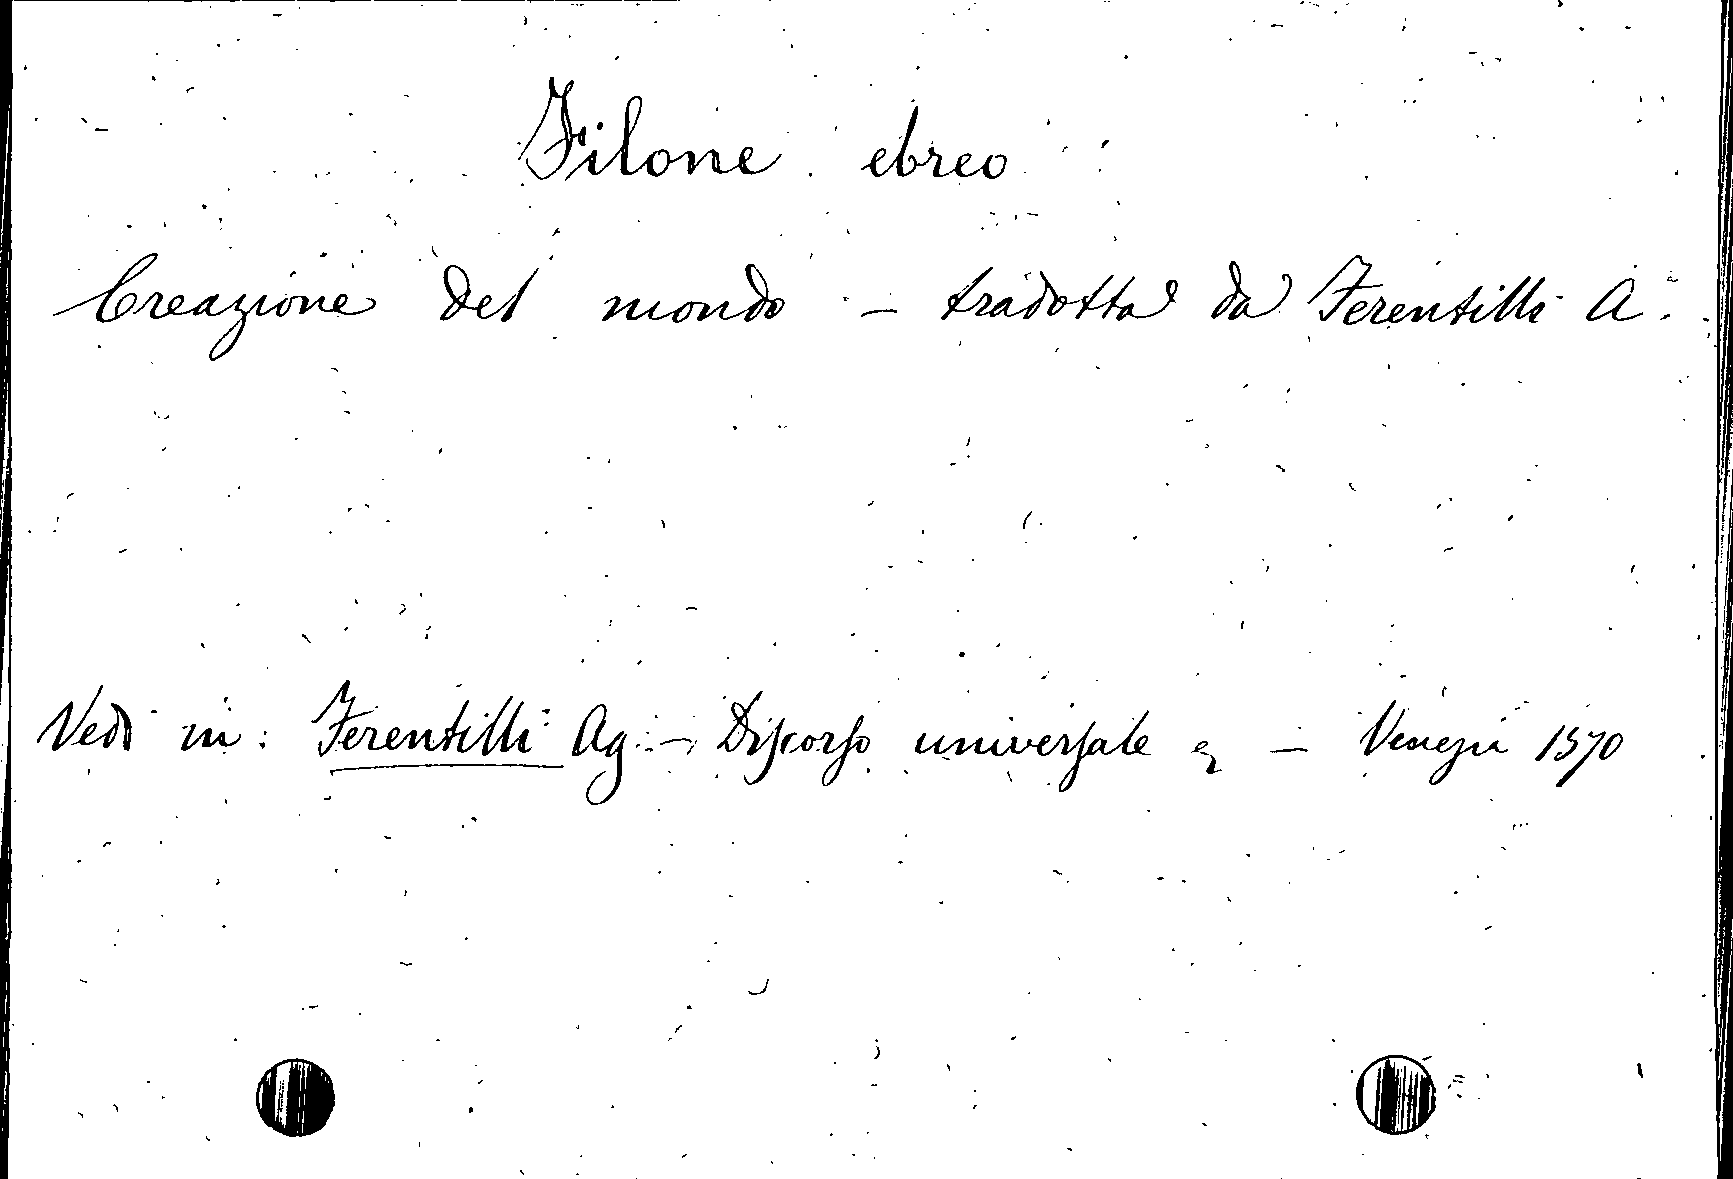 Filone ebreo
Creazione del mondo – tradotta da Ferentilli A.
Vedi in: Ferentilli Ag. – Discorso universale – Venezia 1570